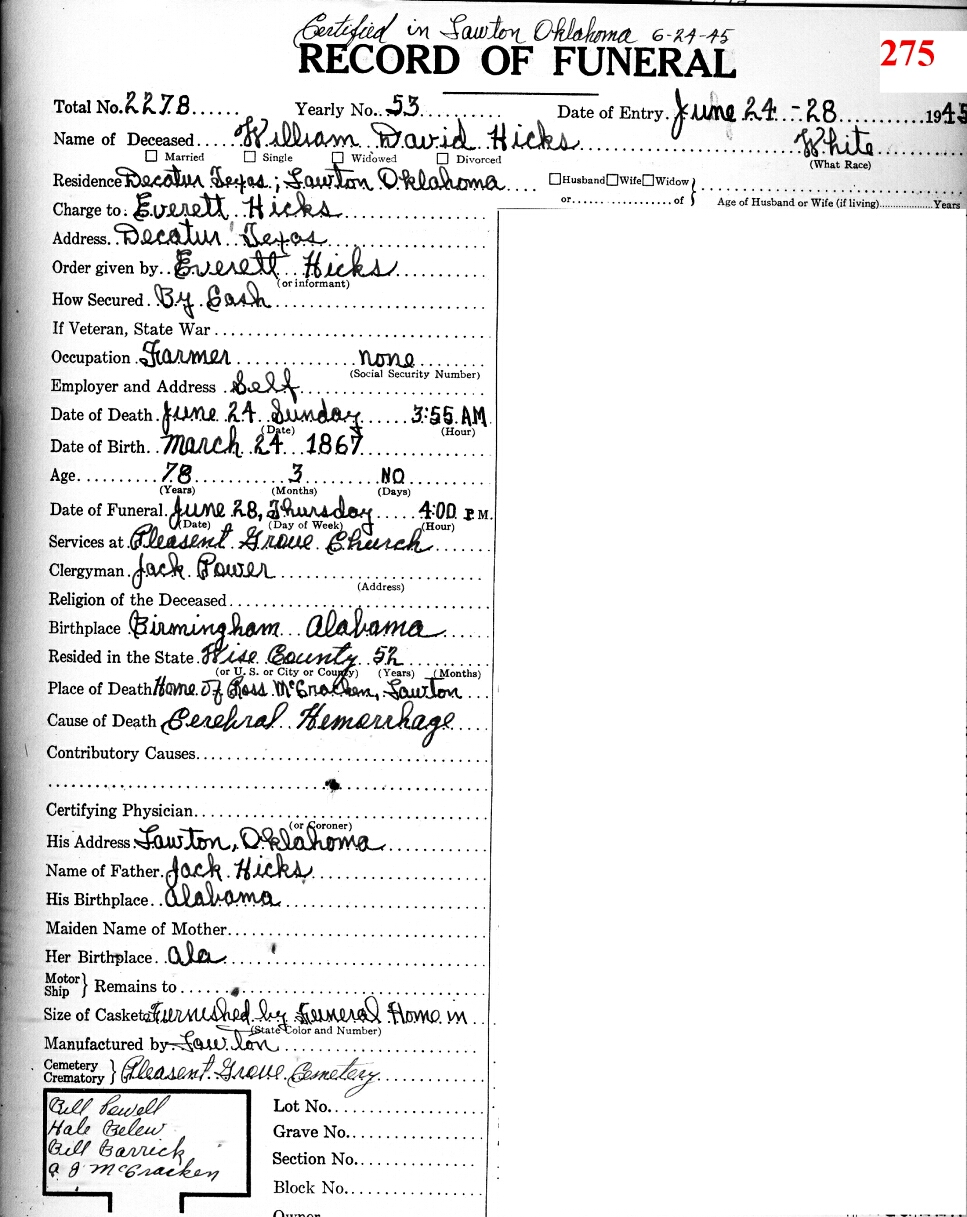 Certified in Lawton Oklahoma 6-24-45
RECORD OF FUNERAL
275
Total No. 2278 Yearly No. 53 Date of Entry June 24 - 28 1945
Name of Deceased William David Hicks White
☐ Married ☐ Single ☐ Widowed ☐ Divorced (What Race)
Residence Decatur Texas; Lawton Oklahoma ☐ Husband ☐ Wife ☐ Widow }
or of Age of Husband or Wife (if living) Years
Charge to Everett Hicks
Address Decatur Texas
Order given by Everett Hicks
(or informant)
How Secured By Cash
If Veteran, State War
Occupation Farmer none
(Social Security Number)
Employer and Address Self
Date of Death June 24 Sunday 3:55 AM
(Date) (Hour)
Date of Birth March 24 1867
Age 78 3 NO
(Years) (Months) (Days)
Date of Funeral June 28, Thursday 4:00 P M.
(Date) (Day of Week) (Hour)
Services at Pleasent Grove Church
Clergyman Jack Power
(Address)
Religion of the Deceased
Birthplace Birmingham Alabama
Resided in the State Wise County 52
(or U. S. or City or County) (Years) (Months)
Place of Death Home of Ross McCracken, Lawton
Cause of Death Cerebral Hemorrhage
Contributory Causes
Certifying Physician
(or Coroner)
His Address Lawton, Oklahoma
Name of Father Jack Hicks
His Birthplace Alabama
Maiden Name of Mother
Her Birthplace Ala
Motor Ship } Remains to
Size of Casket Furnished by Funeral Home in
(State Color and Number)
Manufactured by Lawton
Cemetery Crematory } Pleasent Grove Cemetery
Bill Sewell
Hale Belew
Bill Barrick
A J McCracken
Lot No.
Grave No.
Section No.
Block No.
Owner